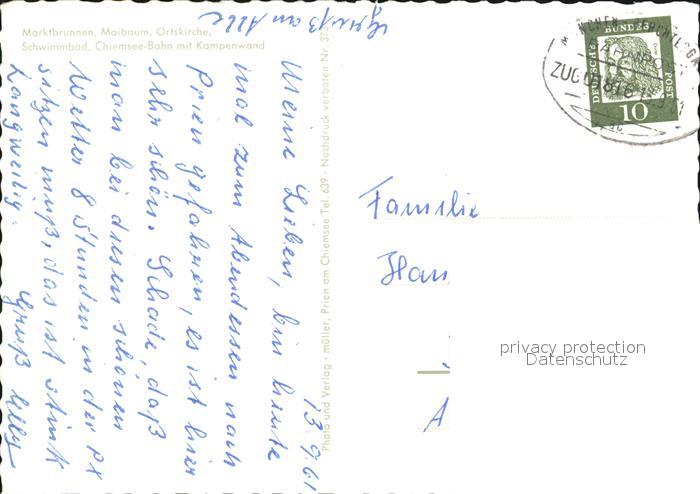 Marktbrunnen, Maibaum, Ortskirche,
Schwimmbad, Chiemsee-Bahn mit Kampenwand
Gruß an Alle
13.9.61
Meine Lieben, bin heute
mal zum Abendessen nach
Prien gefahren, es ist hier
sehr schön. Schade, daß
man bei diesen schönen
Wetter 8 Stunden in der PX
sitzen muß, das ist stink
langweilig.
Gruß
Photo und Verlag · müller, Prien am Chiemsee Tel. 639 · Nachdruck verboten Nr. 375
DEUTSCHE BUNDESPOST
10
ZUG
Familie
Han
A
privacy protection
Datenschutz